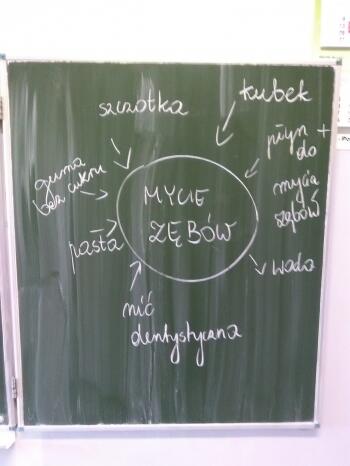 szczotka
kubek
płyn +
do
mycia
zębów
guma
bez cukru
MYCIE
ZĘBÓW
pasta
woda
nić
dentystyczna